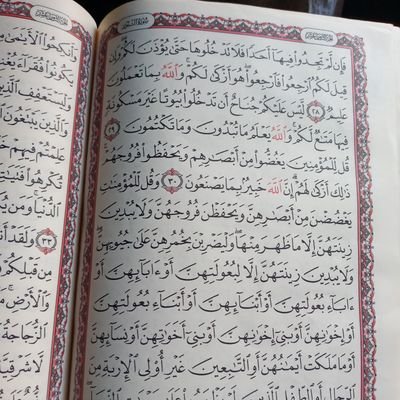 الجزء الثامن عشر
سورة النور
فَإِن لَّمْ تَجِدُوا۟ فِيهَآ أَحَدًا فَلَا تَدْخُلُوهَا حَتَّىٰ يُؤْذَنَ لَكُمْ ۖ وَإِن
قِيلَ لَكُمُ ٱرْجِعُوا۟ فَٱرْجِعُوا۟ ۖ هُوَ أَزْكَىٰ لَكُمْ ۚ وَٱللَّهُ بِمَا تَعْمَلُونَ
عَلِيمٌ ٢٨ لَّيْسَ عَلَيْكُمْ جُنَاحٌ أَن تَدْخُلُوا۟ بُيُوتًا غَيْرَ مَسْكُونَةٍ
فِيهَا مَتَـٰعٌ لَّكُمْ ۚ وَٱللَّهُ يَعْلَمُ مَا تُبْدُونَ وَمَا تَكْتُمُونَ ٢٩
قُل لِّلْمُؤْمِنِينَ يَغُضُّوا۟ مِنْ أَبْصَـٰرِهِمْ وَيَحْفَظُوا۟ فُرُوجَهُمْ ۚ
ذَٰلِكَ أَزْكَىٰ لَهُمْ ۗ إِنَّ ٱللَّهَ خَبِيرٌۢ بِمَا يَصْنَعُونَ ٣٠ وَقُل لِّلْمُؤْمِنَـٰتِ
يَغْضُضْنَ مِنْ أَبْصَـٰرِهِنَّ وَيَحْفَظْنَ فُرُوجَهُنَّ وَلَا يُبْدِينَ
زِينَتَهُنَّ إِلَّا مَا ظَهَرَ مِنْهَا ۖ وَلْيَضْرِبْنَ بِخُمُرِهِنَّ عَلَىٰ جُيُوبِهِنَّ ۖ
وَلَا يُبْدِينَ زِينَتَهُنَّ إِلَّا لِبُعُولَتِهِنَّ أَوْ ءَابَآئِهِنَّ أَوْ
ءَابَآءِ بُعُولَتِهِنَّ أَوْ أَبْنَآئِهِنَّ أَوْ أَبْنَآءِ بُعُولَتِهِنَّ
أَوْ إِخْوَٰنِهِنَّ أَوْ بَنِىٓ إِخْوَٰنِهِنَّ أَوْ بَنِىٓ أَخَوَٰتِهِنَّ أَوْ نِسَآئِهِنَّ
أَوْ مَا مَلَكَتْ أَيْمَـٰنُهُنَّ أَوِ ٱلتَّـٰبِعِينَ غَيْرِ أُو۟لِى ٱلْإِرْبَةِ مِنَ
ٱلرِّجَالِ أَوِ ٱلطِّفْلِ ٱلَّذِينَ
وَأَنكِحُوا۟ ٱلْأَيَـٰمَىٰ
يَكُونُوا۟ فُقَرَآءَ
وَلْيَسْتَعْفِفِ
وَٱلَّذِينَ يَبْتَغُونَ
عَلِمْتُمْ فِيهِمْ
تُكْرِهُوا۟
ٱلدُّنْيَا ۚ وَمَن
٣٣ وَلَقَدْ
مِن قَبْلِكُمْ
وَٱلْأَرْضِ ۚ
ٱلزُّجَاجَةُ
لَّا